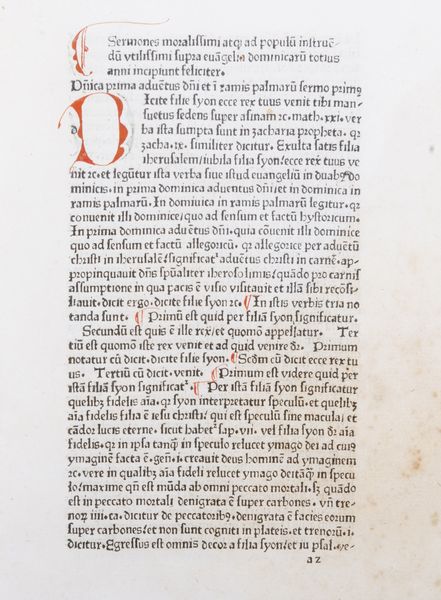 Sermones moralissimi atq; ad populū instruē-
dū vtilissimi supra euāgelia dominicarū totius
anni incipiunt feliciter.
Dn̄ica prima aduētus dn̄i et ī ramis palmarū sermo prim9
DIcite filie syon ecce rex tuus venit tibi man-
suetus sedens super asinam ꝛc. math. xxi. ver
ba ista sumpta sunt in zacharia propheta. qꝛ
zacha. ix. similiter dicitur. Exulta satis filia
iherusalem/iubila filia syon/ecce rex tuus ve
nit ꝛc. et legūtur ista verba siue istud euangeliū in duabꝰ do
minicis. in prima dominica aduentus dn̄i/et in dominica in
ramis palmarū. In dominica in ramis palmarū legitur. qꝛ
conuenit illi dominice/quo ad sensum et factū hystoricum.
In prima dominica aduētus dn̄i. quia cōuenit illi dominice
quo ad sensum et factū allegoricū. qꝛ allegorice per aduētū
christi in iherusalē/significatᷣ aduētus christi in carnē. ap-
propinquauit dn̄s spūaliter iherosolimis/quādo pro carnis
assumptione in qua pacis ē visio visitauit et illā sibi recōsi-
liauit. dicit ergo. dicite filie syon ꝛc. ¶ In istis verbis tria no
tanda sunt. ¶ Primū est quid per filiam syon significatur.
Secundū est quis ē ille rex/et quomō appellatur. Ter
tiū est quomō iste rex venit et ad quid venire dꝛ. Primum
notatur cū dicit. dicite filie syon. ¶ Scdm cū dicit ecce rex tu
us. Tertiū cū dicit. venit. ¶ Primum est videre quid per
istā filiā syon significatᷣ. ¶ Per istā filiā syon significatur
quelibꝫ fidelis aīa. qꝛ syon interpretatur speculū. et quelibꝫ
aīa fidelis filia ē iesu christi/qui est speculū sine macula/et
cādor lucis eterne. sicut habetᷣ sap. vii. vel filia syon dꝛ aīa
fidelis. qꝛ in ipsa tanqͣ in speculo relucet ymago dei ad cuiꝰ
ymaginē facta ē. gen. i. creauit deus hominē ad ymaginem
ꝛc. vere in qualibꝫ aīa fideli relucet ymago deitatis in specu
lo/maxime qn̄ est mūda ab omni peccato mortali. sꝫ quādo
est in peccato mortali denigrata ē super carbones. vn̄ tre-
noꝝ iiii. ca. dicitur de peccatoribꝰ. denigrata ē facies eorum
super carbones/et non sunt cogniti in plateis. et trenoꝝ. i.
dicitur. Egressus est omnis decor a filia syon/et iu psal. ve-
a2